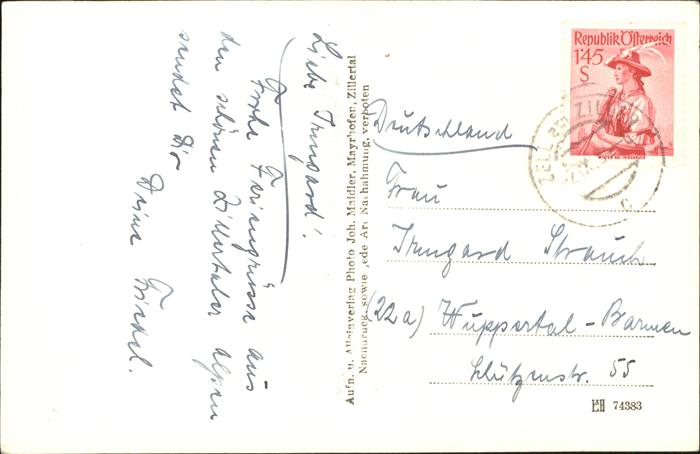 Liebe Irmgard!
Frohe Feriengrüsse aus
den schönen Zillertaler Alpen
sendet Dir
Deine Friedel.
Aufn. u. Alleinverlag Photo Joh. Maidler, Mayrhofen, Zillertal
Nachdruck, sowie jede Art Nachahmung, verboten
Republik Österreich
1'45
S
WILTEN BEI INNSBRUCK
ZELL ZILLER
c
Deutschland
Frau
Irmgard Strauch
(22a) Wuppertal-Barmen
Schützenstr. 55
74383